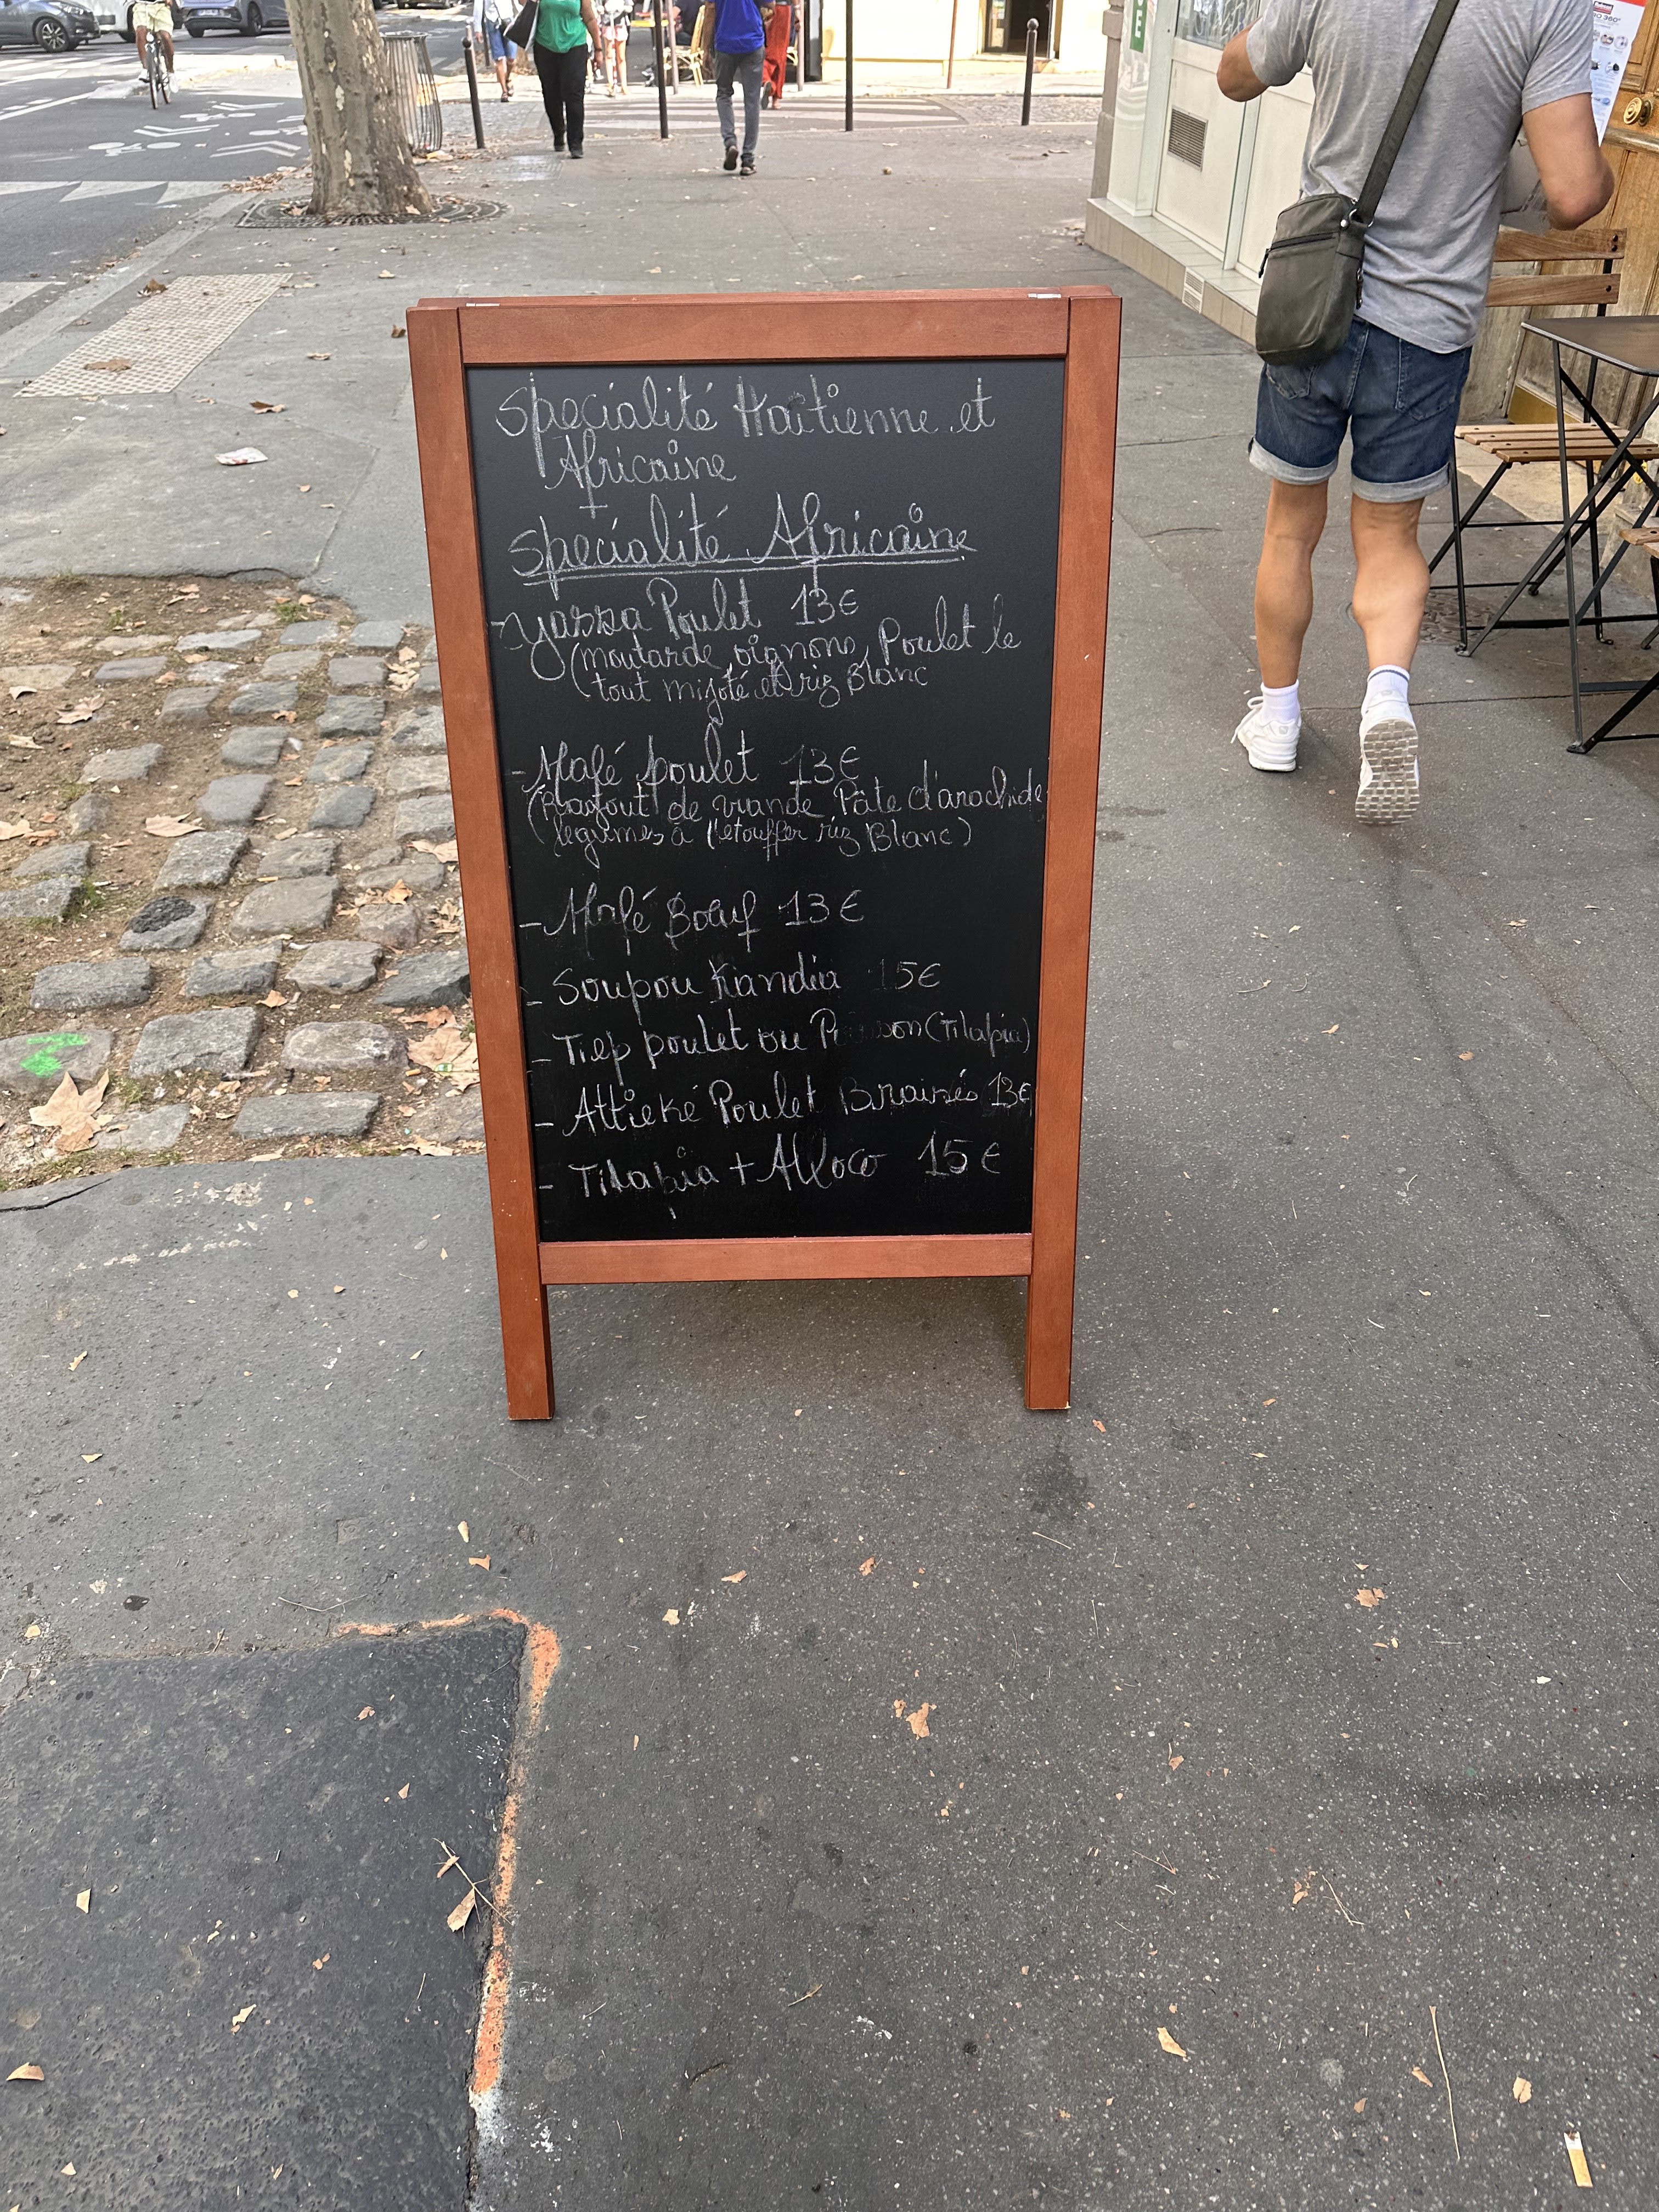 Specialité Haïtienne et
Africaine
+
Specialité Africaine
- yassa Poulet 13€
(moutarde oignons, Poulet le
tout mijoté et riz Blanc
- Mafé poulet 13€
(Ragout de viande Pâte d'arachide,
legumes à l'etouffer riz Blanc)
- Mafé Bœuf 13€
- Soupou Kandia 15€
- Tiep poulet ou Poisson (Tilapia)
- Attieké Poulet Braisés 13€
- Tilapia + Alloco 15€